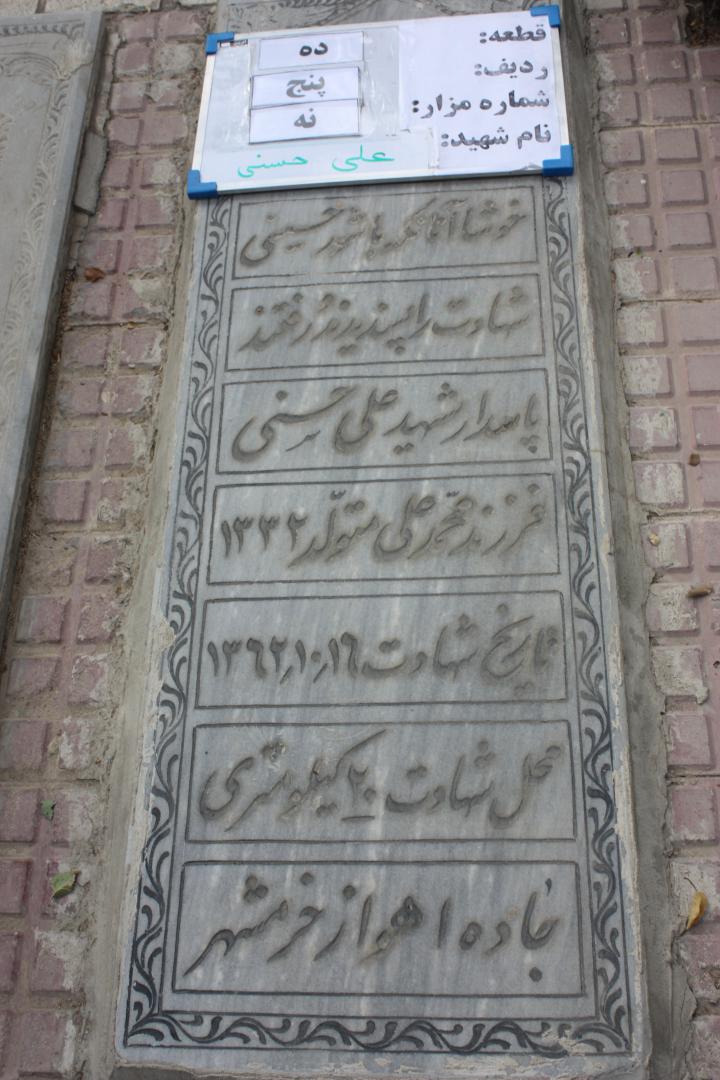 قطعه: ده
ردیف: پنج
شماره مزار: نه
نام شهید: علی حسنی
خوشا آنانکه با شور حسینی
شهادت را پسندیدند و رفتند
پاسدار شهید علی حسنی
فرزند محمدعلی متولد ۱۳۳۲
تاریخ شهادت ۱۳۶۲٫۱۰٫۱۶
محل شهادت ۲۰ کیلومتری
جاده اهواز خرمشهر